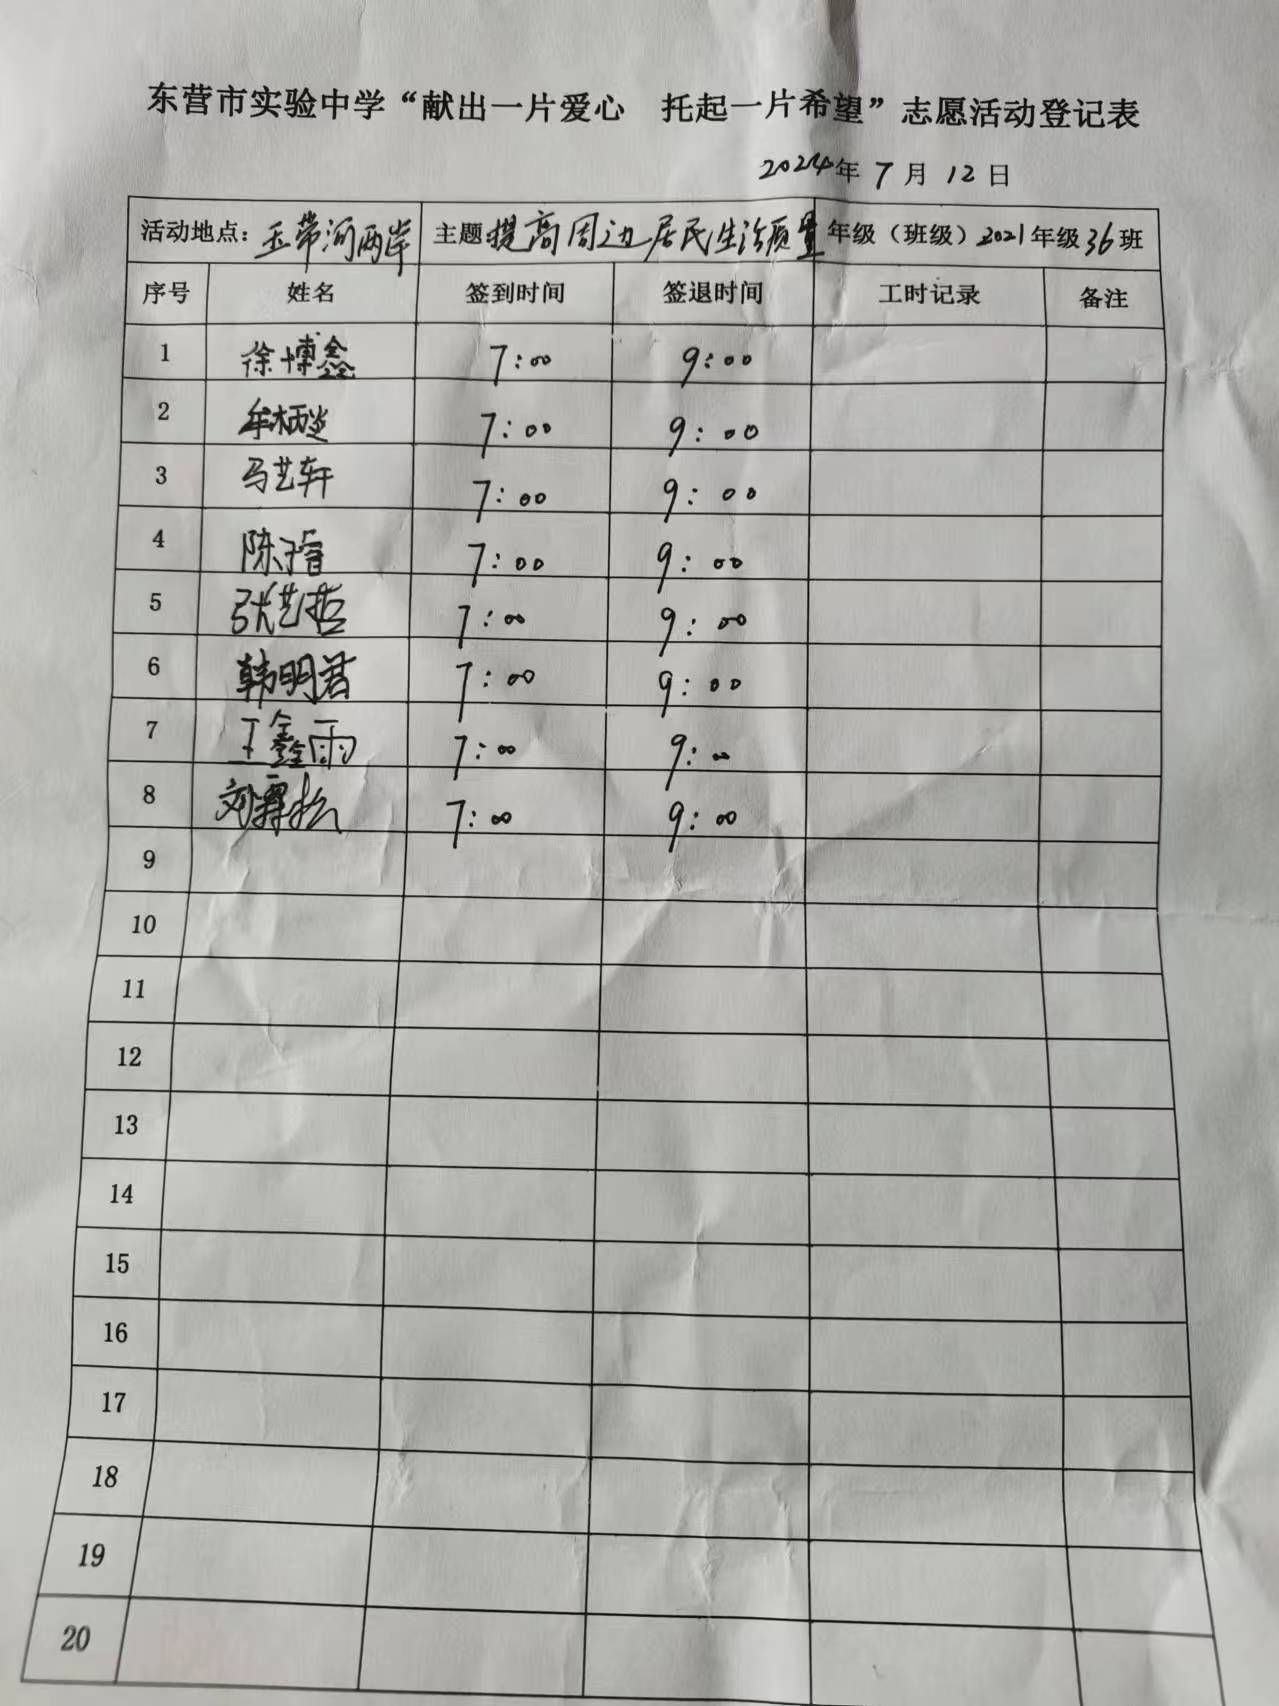 东营市实验中学“献出一片爱心 托起一片希望”志愿活动登记表
2024年7月12日
活动地点：玉带河两岸 主题提高周边居民生活质量 年级（班级）2021年级36班
序号 姓名 签到时间 签退时间 工时记录 备注
1 徐博鑫 7:00 9:00
2 7:00 9:00
3 马艺轩 7:00 9:00
4 陈子睿 7:00 9:00
5 张艺哲 7:00 9:00
6 韩明君 7:00 9:00
7 王鑫雨 7:00 9:00
8 刘霖松 7:00 9:00
9
10
11
12
13
14
15
16
17
18
19
20